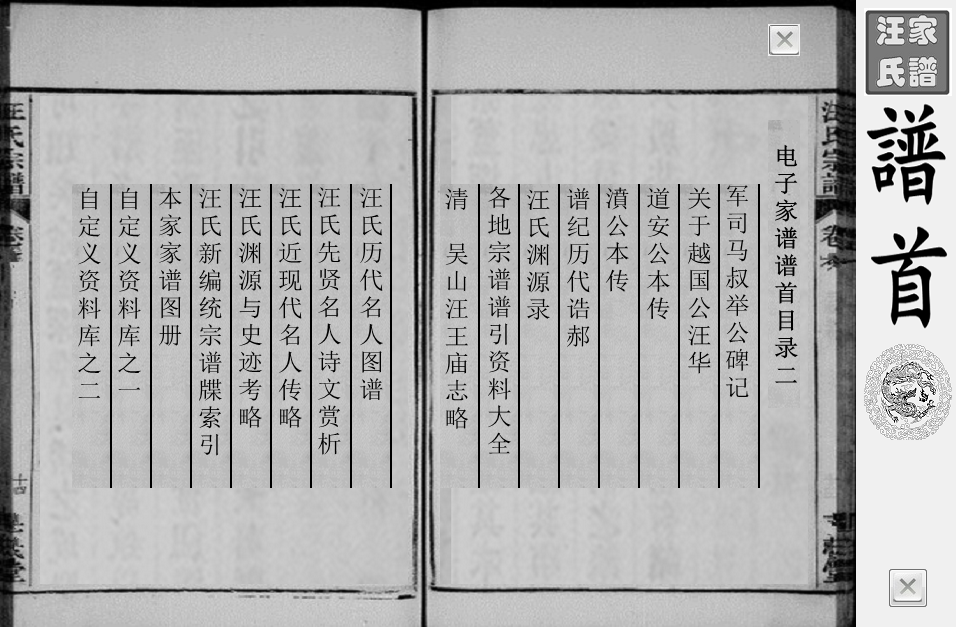 汪家
氏譜
譜首
汪氏宗譜
电子家谱谱首目录二
军司马叔举公碑记
关于越国公汪华
道安公本传
濆公本传
谱纪历代诰郝
汪氏渊源录
各地宗谱谱引资料大全
清 吴山汪王庙志略
汪氏历代名人图谱
汪氏先贤名人诗文赏析
汪氏近现代名人传略
汪氏渊源与史迹考略
汪氏新编统宗谱牒索引
本家家谱图册
自定义资料库之一
自定义资料库之二
汪氏宗譜